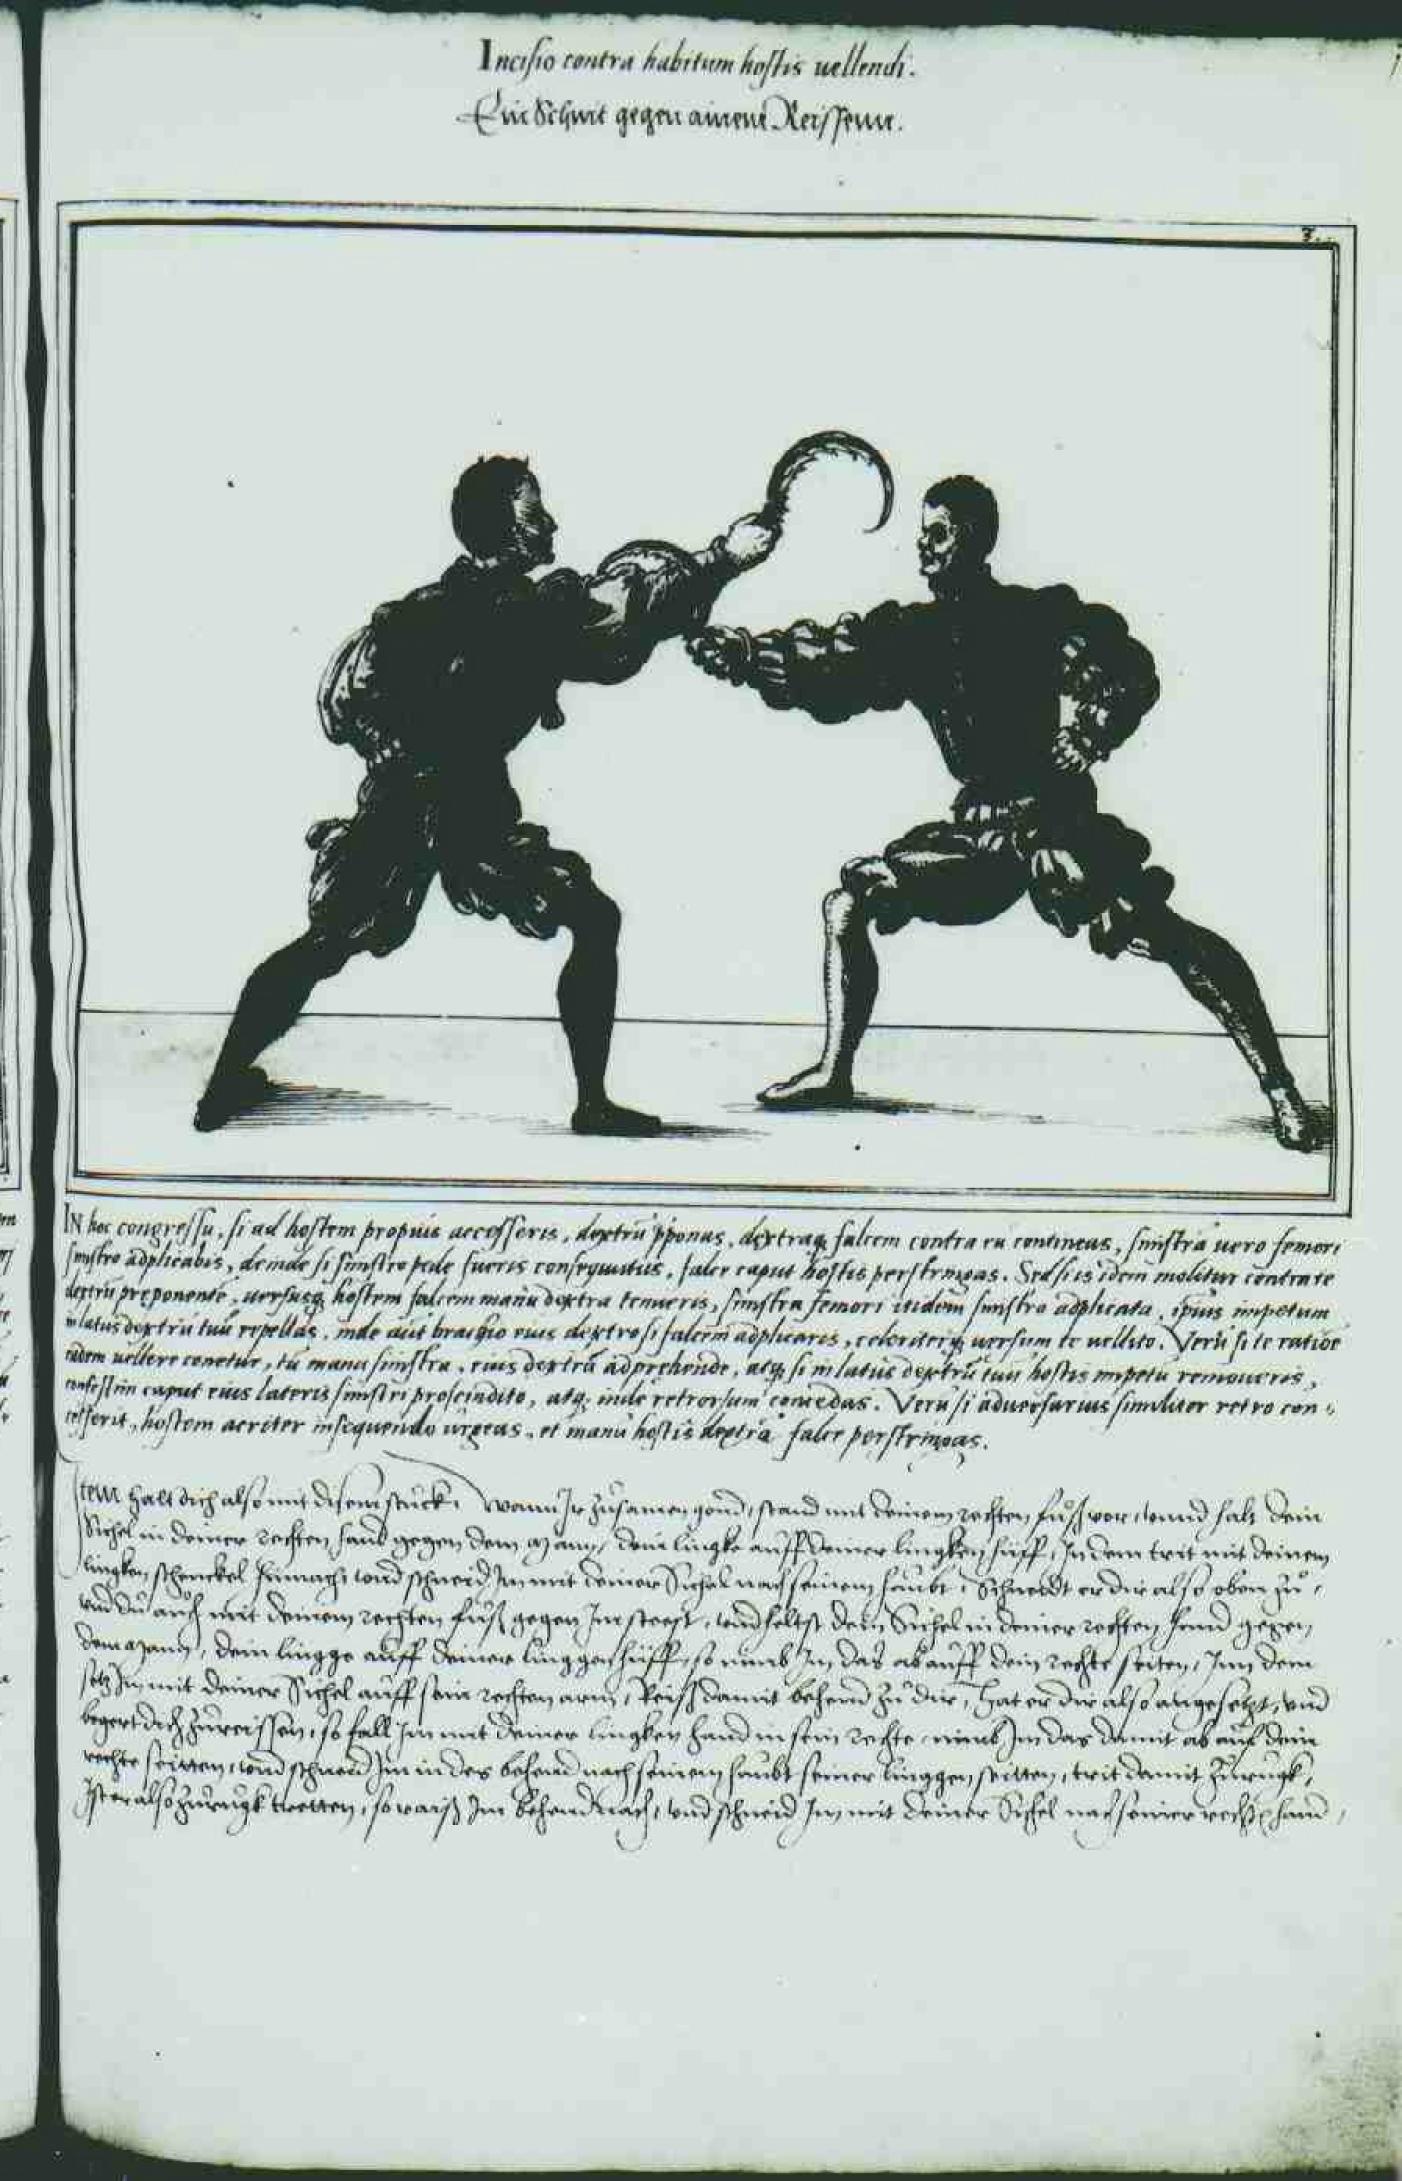 Incisio contra habitum hostis uellendi.
Ein Schnit gegen ainem Reissenn.
3.
IN hoc congressu, si ad hostem propius accesseris, dextrũ p̃ponas, dextraq; falcem contra eũ contineas, sinistrã uero femori
sinistro adplicabis, deinde si sinistro pede fueris consequutus, falce caput hostis perstringas. Sed si is idem molitur contra te
dextrũ preponente, uersusq; hostem falcem manu dextra tenueris, sinistra femori itidem sinistro adplicata, ipsius impetum
in latus dextrũ tuũ repellas, inde aũt brachio eius dextro si falcem adplicaris, celeriterq; uersum te uellito. Verũ si te ratioe
eadem uellere conetur, tu manu sinistra, eius dextrã adprehende, atq; si in latus dextrũ tuũ hostis impetũ remoueris,
confestim caput eius lateris sinistri proscindito, atq; inde retrorsum concedas. Verũ si aduersarius similiter retro con-
cesserit, hostem acriter insequendo urgeas, et manũ hostis dextrã falce perstringas.
Item halt dich also mit disem stuckh wann Ir zůsamen gond, stand mit deinem rechten fůß vor, vnnd halt dein
Sichel in deiner rechten hand gegen dem Mann, dein lingke auff deiner lingken hüff, In dem trit mit deinem
lingken schenckel hinnach, vnd schneid Im mit deiner Sichel nach seinem haubt, Schneidt er dir also oben zů,
vnd du auch mit deinem rechten fůß gegen Im steest, vnd heltst dein Sichel in deiner rechten hand gegen
dem Mann, dein lingge auff deiner linggen hüff, so nimb Im das ab auff dein rechte seiten, Inn dem
setz Im mit deiner Sichel auff sein rechten arm, Reiß damit behend zů dir, Hat er dir also angesetzt, vnd
begert dich zůreissen, so fall Im mit deiner lingken hand in sein rechte, nimb Im das damit ab auf dein
rechte seitten, vnd schneid Im in des behend nach seinem haubt seiner linggen seitten, trit damit zůrugk,
Ist er also zůrugk tretten, so raiß Im behend nach, vnd schneid Im mit deiner Sichel nach seiner rechten hand,